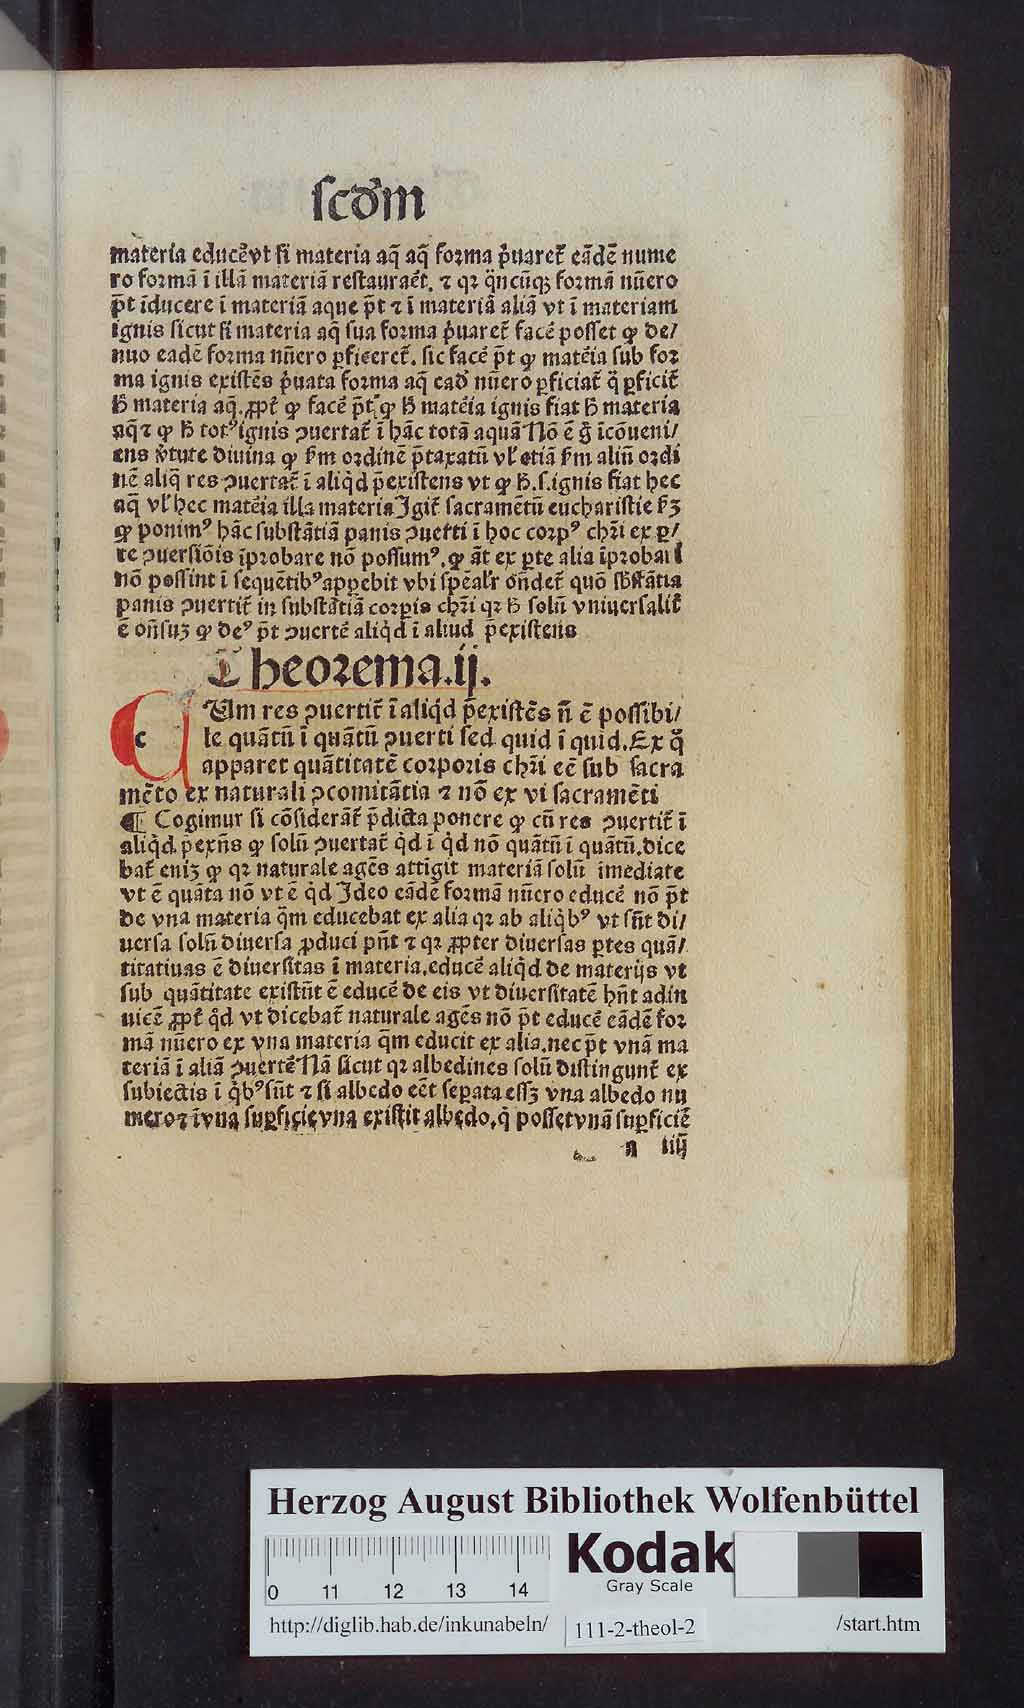 ſcd̓m
materia educēvt ſi materia aq̄ aq̄ forma p̓uaret̄ eādē nume
ro formā ī illā materiā reſtauraēt. ⁊ qꝛ q̄ncūqꝫ formā nūero
p̄t īducere ī materiā aque p̄t ⁊ ī materiā aliā vt ī materiam
ignis ſicut ſi materia aq̄ ſua forma p̓uaret̄ facē poſſet ꝙ de/
nuo eadē forma nūero ꝑficeret̄. ſic facē p̄t ꝙ matēia ſub for
ma ignis exiſtēs p̓uata forma aq̄ ead̓ nūero ꝑficiat̄ q̄ ꝑficit̄
h̄ materia aq̄. ꝓpt̄ ꝙ facē p̄t ꝙ h̄ matēia ignis fiat h̄ materia
aq̄ ⁊ ꝙ h̄ totꝰ ignis ꝯuertat̄ ī hāc totā aquā Nō ē g̊ īcōueni/
ens v̓tute diuina ꝙ ẜm ordinē p̄taxatū vl̓ etiā ẜm aliū ordi
nē aliq̄ res ꝯuertat̄ ī aliq̓d p̄exiſtens vt ꝙ h̄.ſ.ignis fiat hec
aq̄ vl̓ hec matēia illa materia Igit̄ ſacramētū euchariſtie ẜꝫ
ꝙ ponimꝰ hāc ſubſtātiā panis ꝯuerti ī hoc corpꝰ chr̄i ex ꝑ/
te ꝯuerſiōis īprobare nō poſſumꝰ. ꝙ āt ex ꝑte alia īprobari
nō poſſint ī ſequētibꝰ apꝑebit vbi ſpēalr̓ on̄det̄ quō ſb̄ſtātia
panis ꝯuertit̄ in ſubſtātiā corꝑis chr̄i qꝛ h̄ ſolū vniuerſalit̄
ē on̄ſuꝫ ꝙ deꝰ p̄t ꝯuertē aliq̓d ī aliud p̄exiſtens
Theorema.ij.
c Um res ꝯuertit̄ ī aliq̓d p̄exiſtēs n̄ ē poſſibi/
le quātū ī quātū ꝯuerti ſed quid ī quid. Ex q̊
apparet quātitatē corporis chr̄i eē ſub ſacra
mēto ex naturali ꝯcomitātia ⁊ nō ex vi ſacramēti
¶ Cogimur ſi cōſiderāt̄ p̄dicta ponere ꝙ cū res ꝯuertit̄ ī
aliq̓d p̄exn̄s ꝙ ſolū ꝯuertat̄ q̓d ī q̓d nō quātū ī quātū. dice
bat̄ eniꝫ ꝙ qꝛ naturale agēs attīgit materiā ſolū īmediate
vt ē quāta nō vt ē q̓d Ideo eādē formā nūero educē nō p̄t
de vna materia q̄m educebat ex alia qꝛ ab aliq̓bꝰ vt ſūt di/
uerſa ſolū diuerſa ꝓduci pn̄t ⁊ qꝛ ꝓpter diuerſas ꝑtes quā/
titatiuas ē diuerſitas ī materia. educē aliq̓d de materijs vt
ſub quātitate exiſtn̄t ē educē de eis vt diuerſitatē hn̄t adin
uicē ꝓpt̄ q̓d vt dicebat̄ naturale agēs nō p̄t educē eādē for
mā nūero ex vna materia q̄m educit ex alia. nec p̄t vnā ma
teriā ī aliā ꝯuertē Nā ſicut qꝛ albedines ſolū diſtingunt̄ ex
ſubiectis ī q̓bꝰ ſūt ⁊ ſi albedo eēt ſeꝑata eſſꝫ vna albedo nu
mero ⁊ ī vna ſuꝑficie vna exiſtit albedo. q̓ poſſet vnā ſuꝑficiē
n iiij
Herzog August Bibliothek Wolfenbüttel
0 11 12 13 14
Kodak
Gray Scale
http://diglib.hab.de/inkunabeln/ 111-2-theol-2 /start.htm